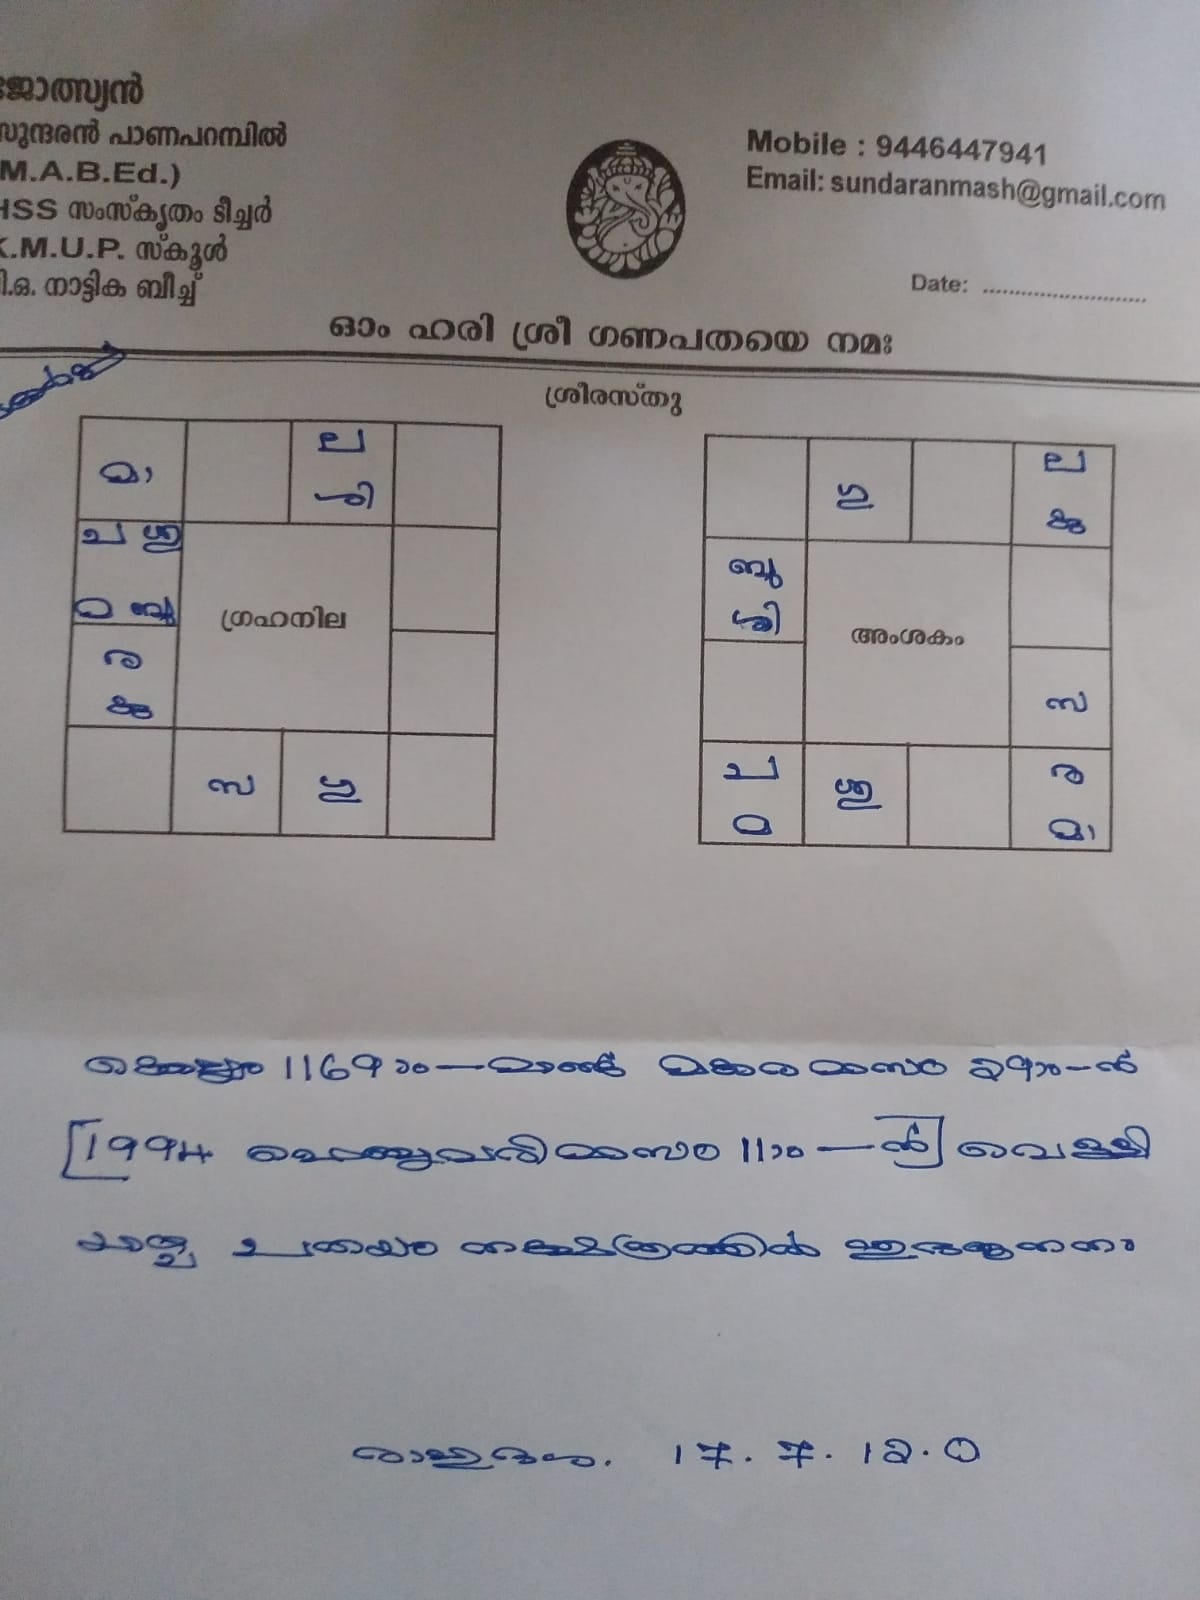 ജോത്സ്യൻ
സുന്ദരൻ പാണപറമ്പിൽ
M.A.B.Ed.)
HSS സംസ്കൃതം ടീച്ചർ
K.M.U.P. സ്കൂൾ
പി.ഒ. നാട്ടിക ബീച്ച്
Mobile : 9446447941
Email: sundaranmash@gmail.com
Date: ..........................
ഓം ഹരി ശ്രീ ഗണപതയെ നമഃ
ശ്രീരസ്തു
മാ
ല
ശി
ച ശു
ഠ ബു
ര
കു
ഗ്രഹനില
സ
ഗു
ല
കു
ഗു
ബു
ശി
അംശകം
സ
ച
ഠ
ശു
ര
മാ
കൊല്ലം 1169ാം—മാണ്ട് മകരമാസം 29ാം–ൻ
[1994 ഫെബ്രുവരിമാസം 11ാം—ൻ] വെള്ളി
യാഴ്ച ചതയം നക്ഷത്രത്തിൽ
17. 7. 12. 0